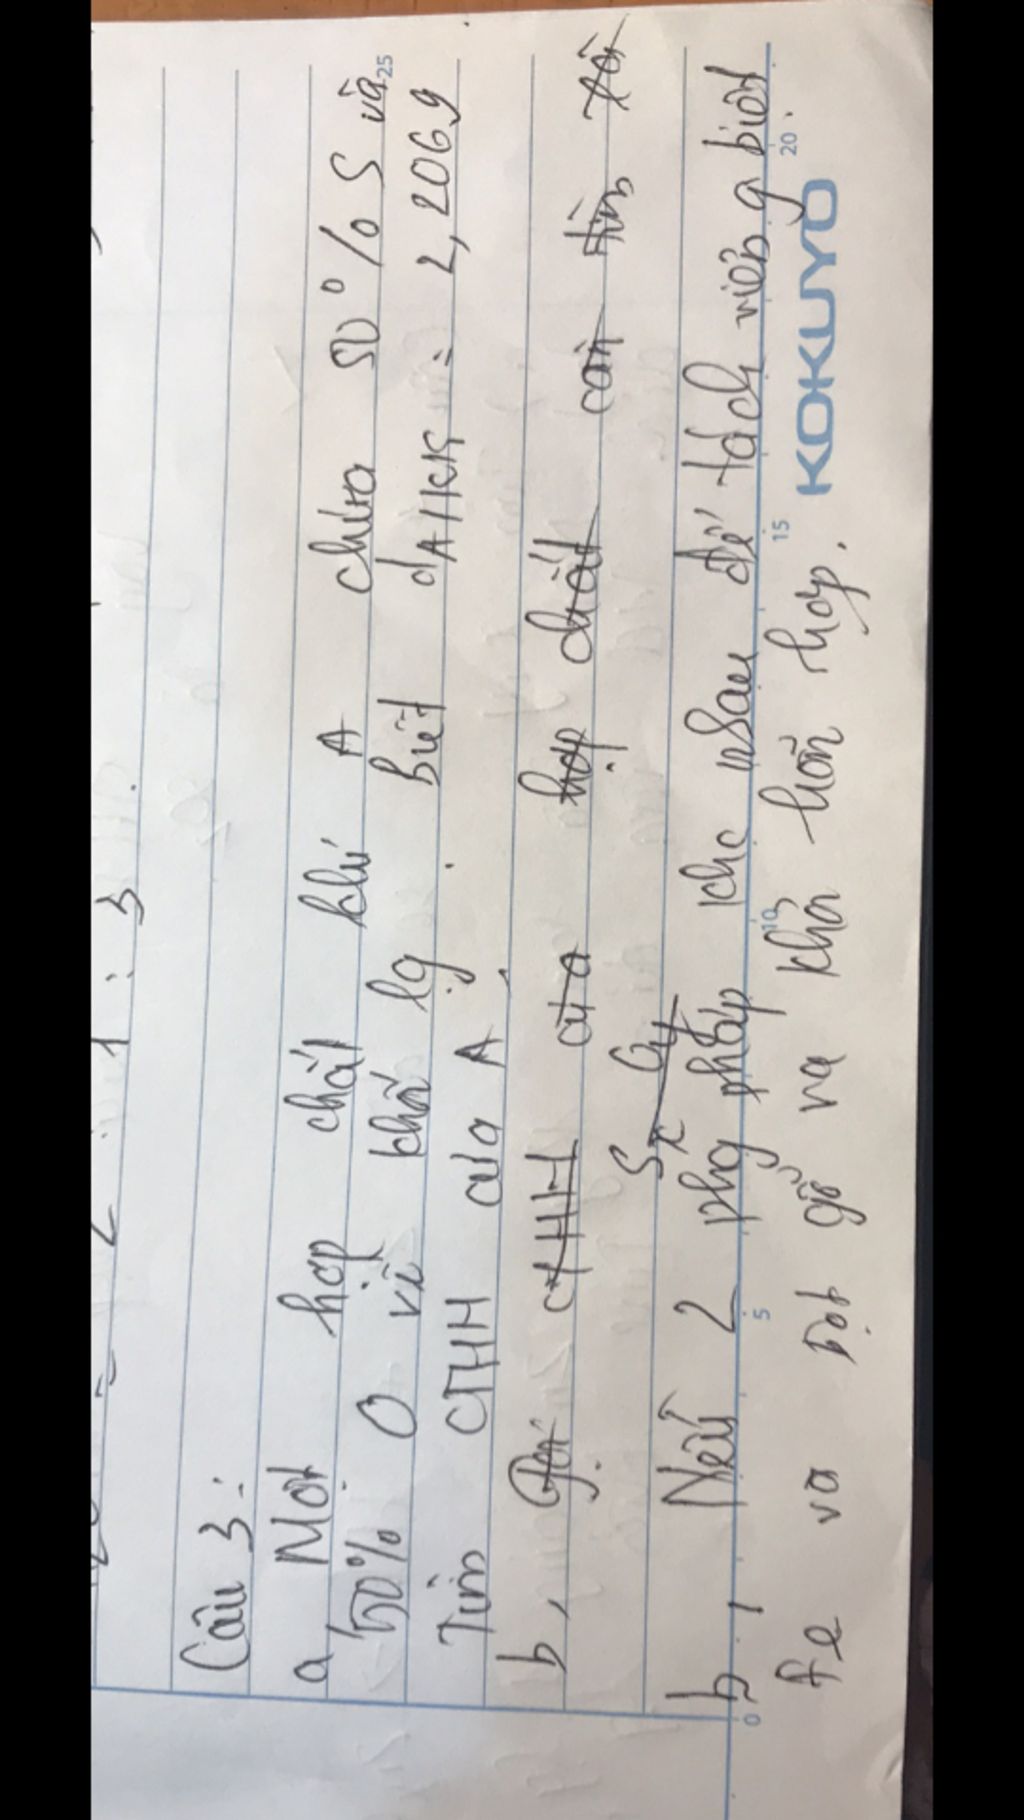 2 = 1 : 3
Câu 3 :
a Một hợp chất khí A chứa 50% S và
50% O về khối lg. Biết dA/KK = 2,2069
Tìm CTHH của A
b, Gọi CTHH của hợp chất cần tìm là
SxOy
b, Nêu 2 phg pháp khc nhau để tách riêng bột
Fe va bột gỗ va khỏi hỗn hợp.
0 5 10 15 20 25
KOKUYO